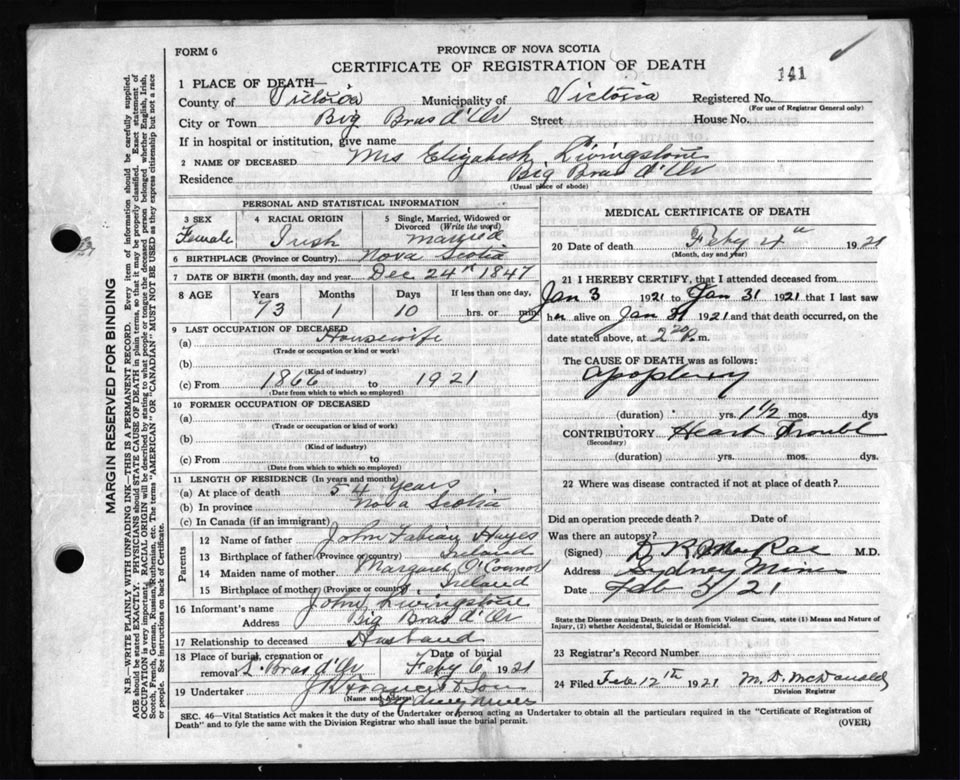 FORM 6
PROVINCE OF NOVA SCOTIA
CERTIFICATE OF REGISTRATION OF DEATH
141
1 PLACE OF DEATH—
County of Victoria Municipality of Victoria Registered No.
(For use of Registrar General only)
City or Town Big Bras d'Or Street House No.
If in hospital or institution, give name
2 NAME OF DECEASED Mrs Elizabeth Livingstone
Residence Big Bras d'Or
(Usual place of abode)
PERSONAL AND STATISTICAL INFORMATION
3 SEX Female
4 RACIAL ORIGIN Irish
5 Single, Married, Widowed or Divorced (Write the word) married
6 BIRTHPLACE (Province or Country) Nova Scotia
7 DATE OF BIRTH (month, day and year) Dec 24th 1847
8 AGE Years 73 Months 1 Days 10 If less than one day, hrs. or min.
9 LAST OCCUPATION OF DECEASED
(a) Housewife
(Trade or occupation or kind or work)
(b)
(Kind of industry)
(c) From 1866 to 1921
(Date from which to which so employed)
10 FORMER OCCUPATION OF DECEASED
(a)
(Trade or occupation or kind of work)
(b)
(Kind of industry)
(c) From to
(Date from which to which so employed)
11 LENGTH OF RESIDENCE (In years and months)
(a) At place of death 54 years
(b) In province Nova Scotia
(c) In Canada (if an immigrant)
Parents
12 Name of father John Fabian Hayes
13 Birthplace of father (Province or country) Ireland
14 Maiden name of mother Margaret O'Connor
15 Birthplace of mother (Province or country) Ireland
16 Informant's name John Livingstone
Address Big Bras d'Or
17 Relationship to deceased Husband
18 Place of burial, cremation or removal L. Bras d'Or Date of burial Feby 6 1921
19 Undertaker J R Francis & Son
(Name and Address) Sydney Mines
MEDICAL CERTIFICATE OF DEATH
20 Date of death Feby 4th 1921
(Month, day and year)
21 I HEREBY CERTIFY, that I attended deceased from
Jan 3 1921 to Jan 31 1921 that I last saw
her alive on Jan 31 1921 and that death occurred, on
date stated above, at 2 P.m.
The CAUSE OF DEATH was as follows:
Apoplexy
(duration) yrs. 1 1/2 mos. dys
CONTRIBUTORY Heart Trouble
(Secondary)
(duration) yrs. mos. dys.
22 Where was disease contracted if not at place of death?
Did an operation precede death? Date of
Was there an autopsy?
(Signed) MacRae M.D.
Address Sydney Mines
Date Feb 5/21
State the Disease causing Death, or in death from Violent Causes, state (1) Means and Nature of Injury, (2) whether Accidental, Suicidal or Homicidal.
23 Registrar's Record Number
24 Filed Feb. 12th 1921 M. D. McDonald
Division Registrar
SEC. 46—Vital Statistics Act makes it the duty of the Undertaker or person acting as Undertaker to obtain all the particulars required in the "Certificate of Registration of
Death" and to fyle the same with the Division Registrar who shall issue the burial permit. (OVER)
MARGIN RESERVED FOR BINDING
N.B.—WRITE PLAINLY WITH UNFADING INK—THIS IS A PERMANENT RECORD. Every item of information should be carefully supplied.
AGE should be stated EXACTLY. PHYSICIANS should STATE CAUSE OF DEATH in plain terms, so that it may be properly classified. Exact statement of
OCCUPATION is very important. RACIAL ORIGIN will be described by stating to what people or tongue the deceased person belonged whether English, Irish,
Scotch, French, German, Russian, Ruthenian, etc. The terms "AMERICAN" or "CANADIAN" MUST NOT BE USED as they express citizenship but not a race
or people. See instructions on back of Certificate.